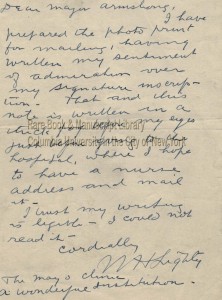 Dear Major Armstrong, I have
prepared the photo print
for mailing, having
written my sentiment
of admiration over
my signature inscrip-
tion. That and this
note is written in a
Rare Book & Manuscript Library
my eyes
just
Columbia University in the City of New York
hospital, where I hope
to have a nurse
address and mail
it -
I trust my writing
is legible - I could not
read it -
Cordially
The Mayo Clinic
a wonderful institution.